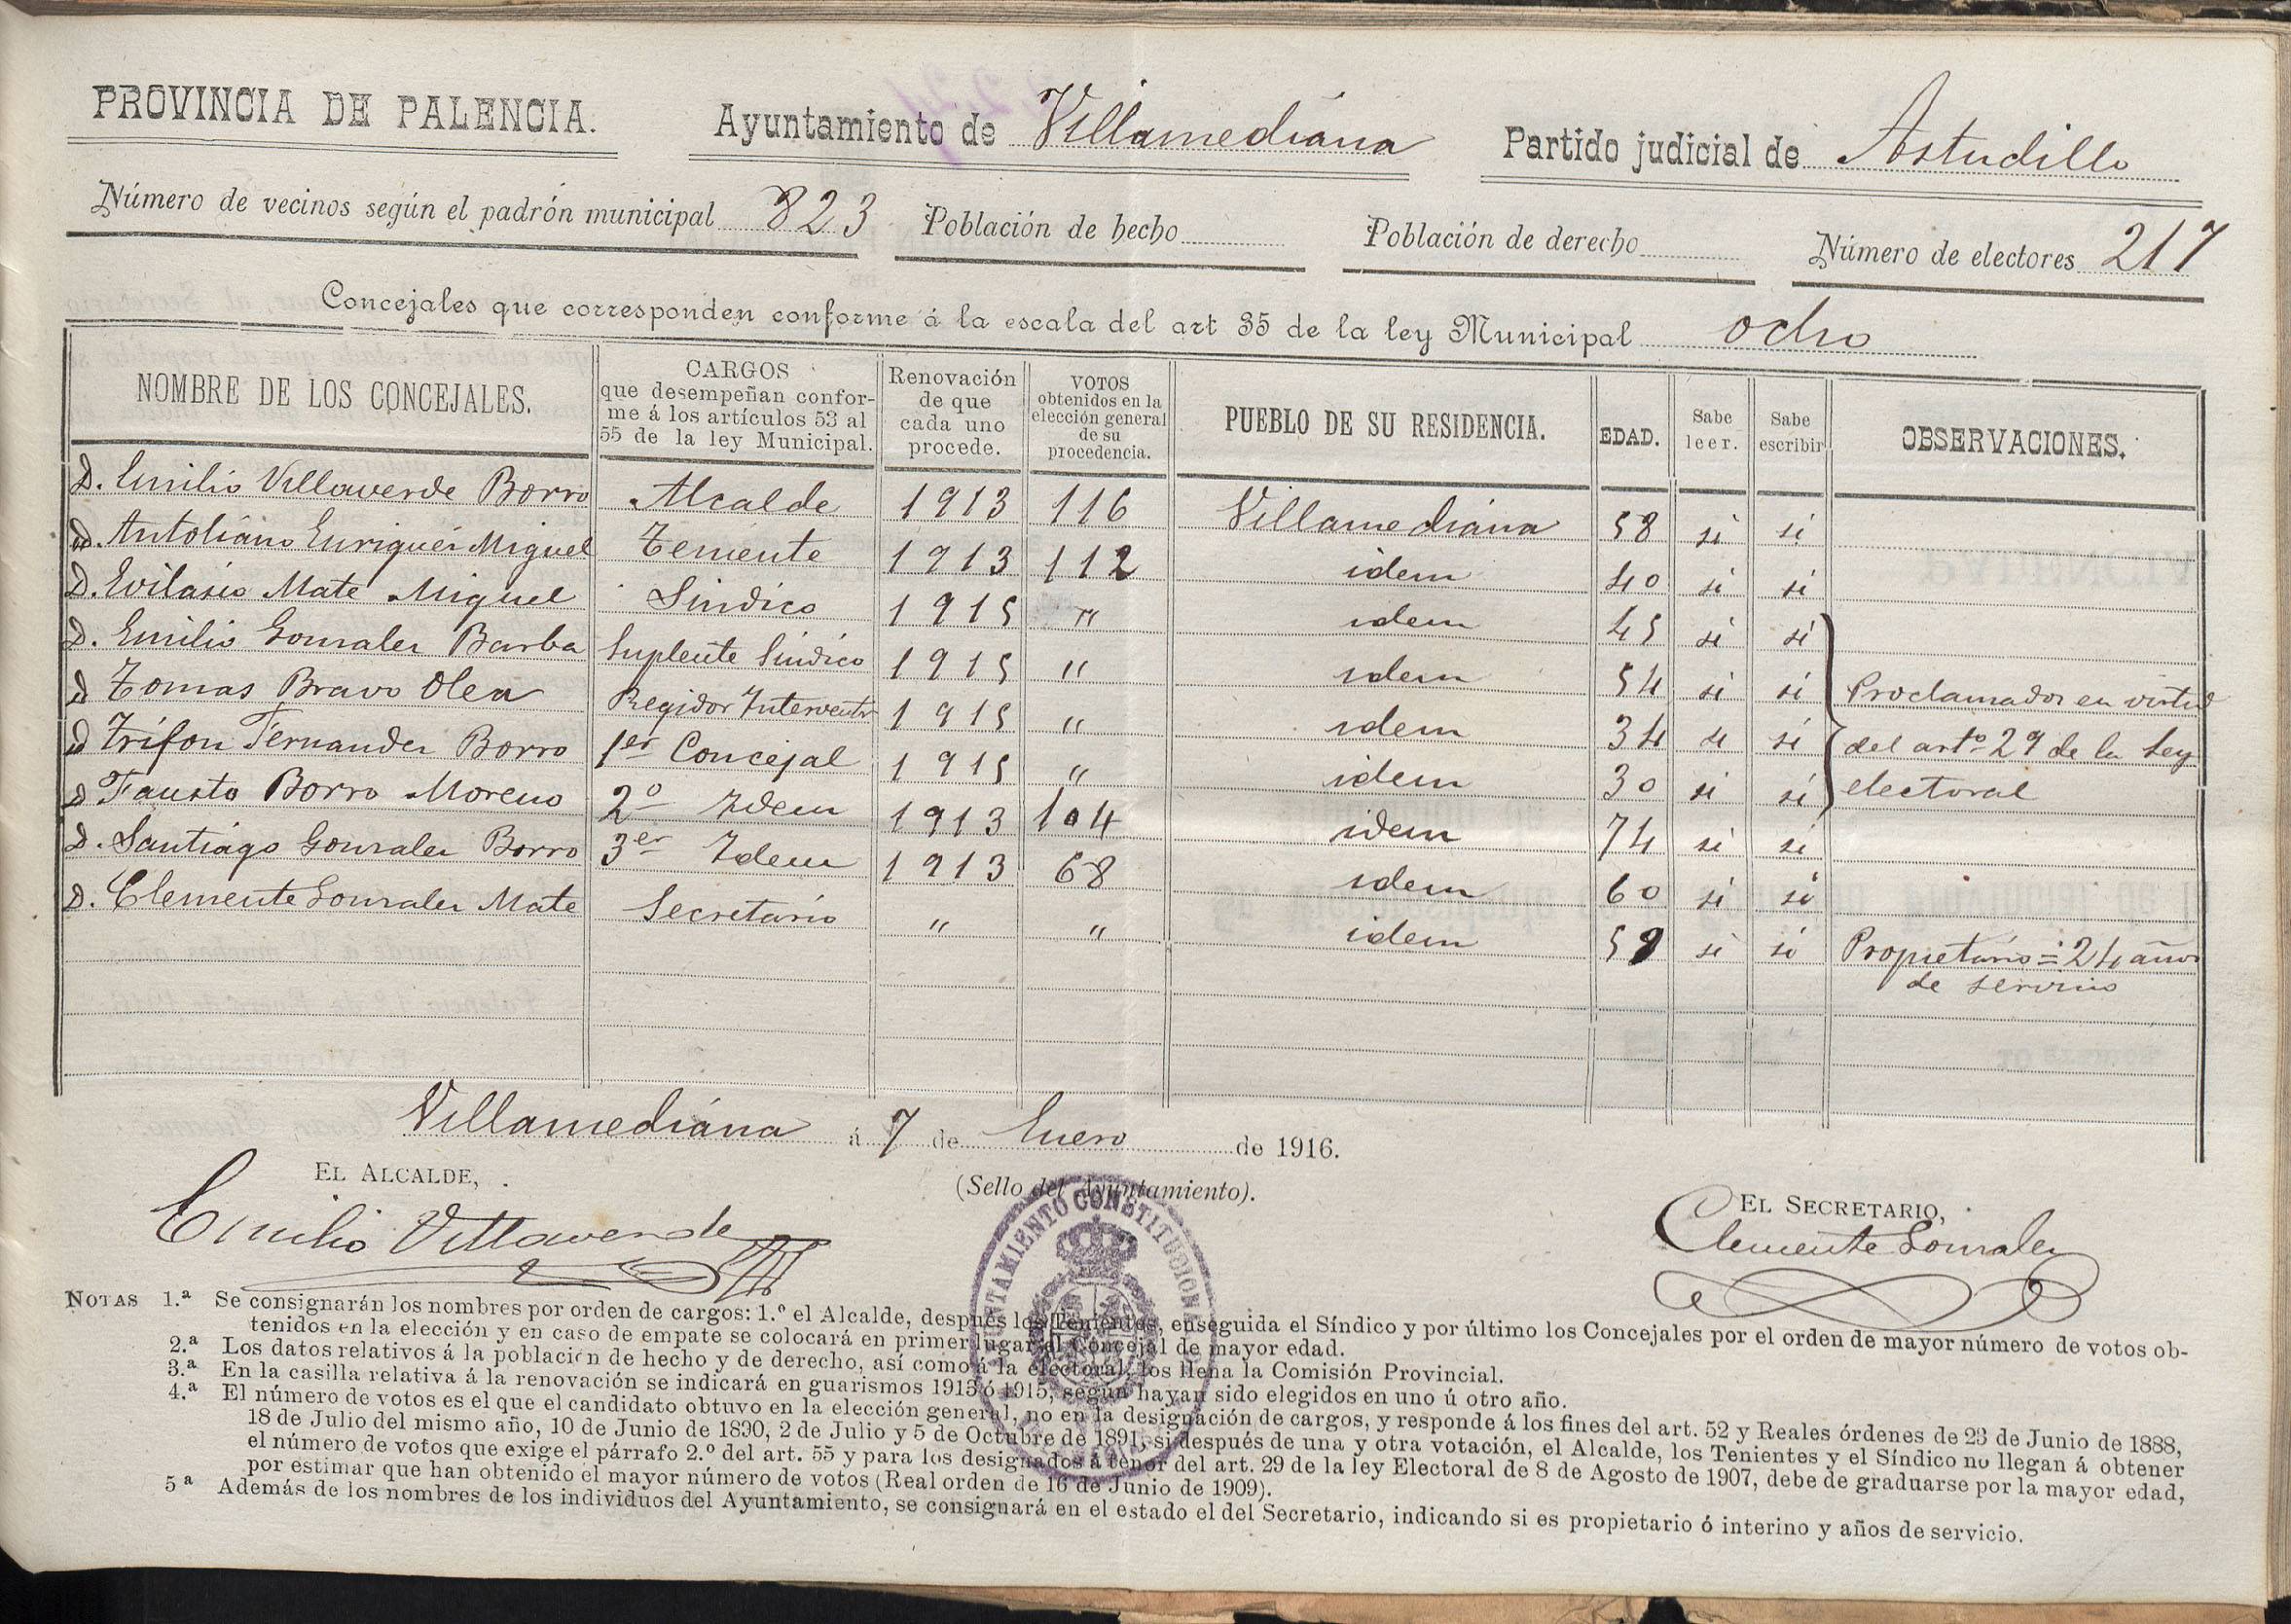 PROVINCIA DE PALENCIA. Ayuntamiento de Villamediana Partido judicial de Astudillo
Número de vecinos según el padrón municipal 823 Población de hecho Población de derecho Número de electores 217
Concejales que corresponden conforme á la escala del art 35 de la ley Municipal ocho
NOMBRE DE LOS CONCEJALES. CARGOS que desempeñan confor- me á los artículos 53 al 55 de la ley Municipal. Renovación de que cada uno procede. VOTOS obtenidos en la elección general de su procedencia. PUEBLO DE SU RESIDENCIA. EDAD. Sabe leer. Sabe escribir OBSERVACIONES.
D. Emilio Villaverde Borro Alcalde 1913 116 Villamediana 58 si si
D. Antoliano Enriquez Miguel Teniente 1913 112 idem 40 si si
D. Evilasio Mate Miguel Sindico 1915 " idem 45 si si
D. Emilio Gonzalez Barba Suplente Sindico 1915 " idem 54 si si Proclamados en virtud
D Tomas Bravo Olea Regidor Interventor 1915 " idem 34 si si del artº 29 de la Ley
D Trifon Fernandez Borro 1er Concejal 1915 " idem 30 si si electoral
D Fausto Borro Moreno 2º Idem 1913 104 idem 74 si si
D. Santiago Gonzalez Borro 3er Idem 1913 68 idem 60 si si
D. Clemente Gonzalez Mate Secretario " " idem si si Propietario = 24 años
de servicio
Villamediana á 7 de Enero de 1916.
EL ALCALDE, (Sello del Ayuntamiento). EL SECRETARIO,
Emilio Villaverde Clemente Gonzalez
AYUNTAMIENTO CONSTITUCIONAL
NOTAS 1.ª Se consignarán los nombres por orden de cargos: 1.º el Alcalde, después los Tenientes, enseguida el Síndico y por último los Concejales por el orden de mayor número de votos ob-
tenidos en la elección y en caso de empate se colocará en primer lugar al Concejal de mayor edad.
2.ª Los datos relativos á la población de hecho y de derecho, así como á la electoral, los llena la Comisión Provincial.
3.ª En la casilla relativa á la renovación se indicará en guarismos 1913 ó 1915, según hayan sido elegidos en uno ú otro año.
4.ª El número de votos es el que el candidato obtuvo en la elección general, no en la designación de cargos, y responde á los fines del art. 52 y Reales órdenes de 23 de Junio de 1888,
18 de Julio del mismo año, 10 de Junio de 1890, 2 de Julio y 5 de Octubre de 1891, si después de una y otra votación, el Alcalde, los Tenientes y el Síndico no llegan á obtener
el número de votos que exige el párrafo 2.º del art. 55 y para los designados á tenor del art. 29 de la ley Electoral de 8 de Agosto de 1907, debe de graduarse por la mayor edad,
por estimar que han obtenido el mayor número de votos (Real orden de 16 de Junio de 1909).
5ª Además de los nombres de los individuos del Ayuntamiento, se consignará en el estado el del Secretario, indicando si es propietario ó interino y años de servicio.